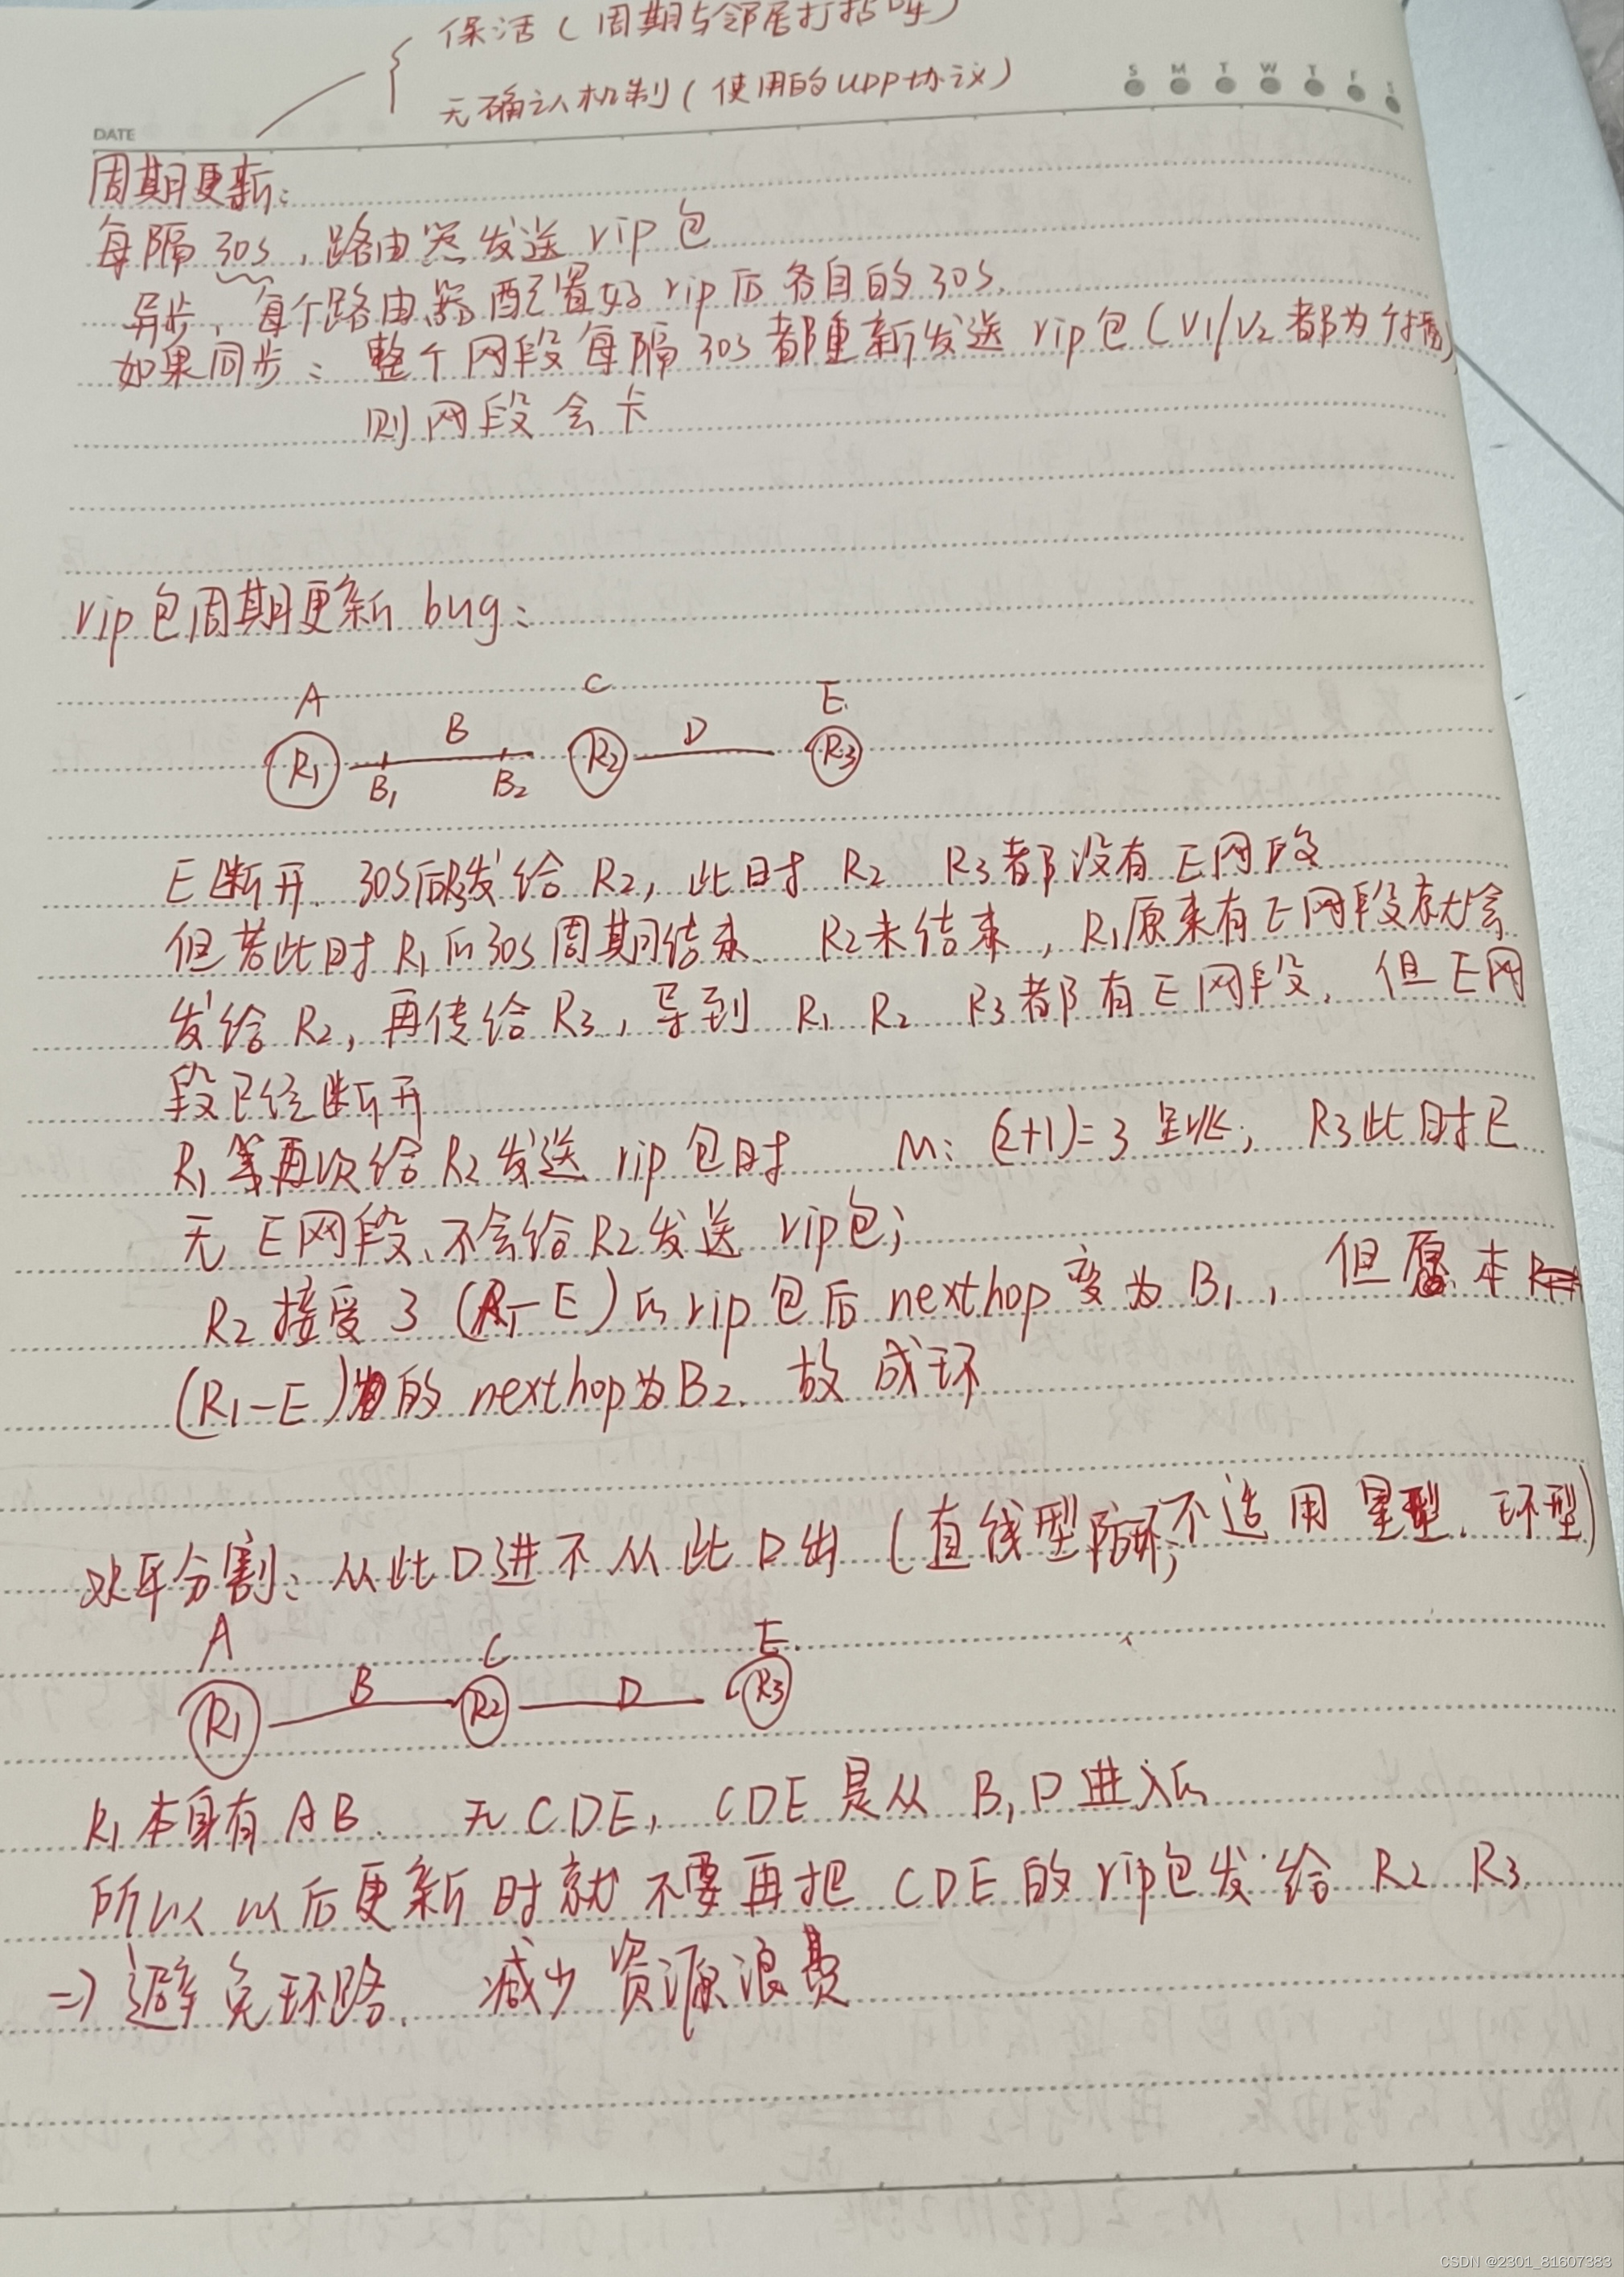 保活（周期与邻居打招呼）
无确认机制（使用的UDP协议）
S M T W T F S
DATE
周期更新：
每隔30s，路由器发送rip包
异步，每个路由器配置好rip后各自的30s.
如果同步：整个网段每隔30s都重新发送rip包（V1/V2都为
则网段会卡
rip包周期更新bug：
A C E
B D
R1 R2 R3
B1 B2
E断开.30s后R3发给R2，此时R2 R3都没有E网段
但若此时R1的30s周期结束、R2未结束，R1原来有E网段就会
发给R2，再传给R3，导到 R1 R2 R3都有E网段，但E网
段已经断开
R1等再次给R2发送rip包时 M：(2+1)=3 R3此时已
无E网段、不会给R2发送rip包；
R2接受3（R1-E）的rip包后nexthop变为B1，但原本
(R1-E)的nexthop为B2.故成环
水平分割：从此口进不从此口出（直线型防环，不适用星型、环型）
A C E
B D
R1 R2 R3
R1本身有AB、无CDE，CDE是从B，D进入的
所以以后更新时就不要再把CDE的rip包发给R2 R3.
=> 避免环路、减少资源浪费
CSDN @2301_81607383